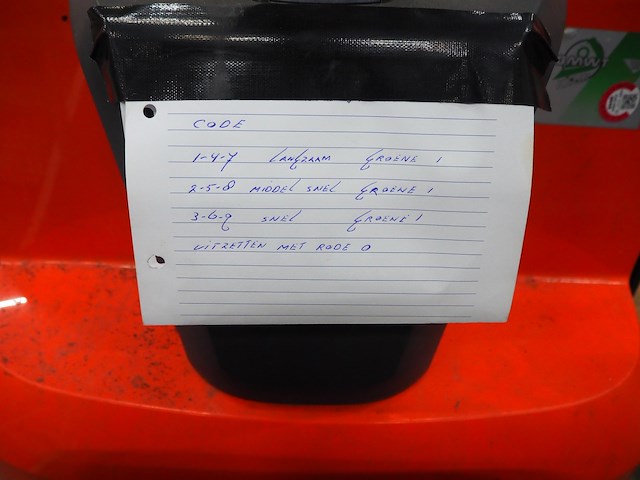 CODE
1-4-7 LANGZAAM GROENE 1
2-5-8 MIDDEL SNEL GROENE 1
3-6-9 SNEL GROENE 1
UITZETTEN MET RODE 0
BMWT